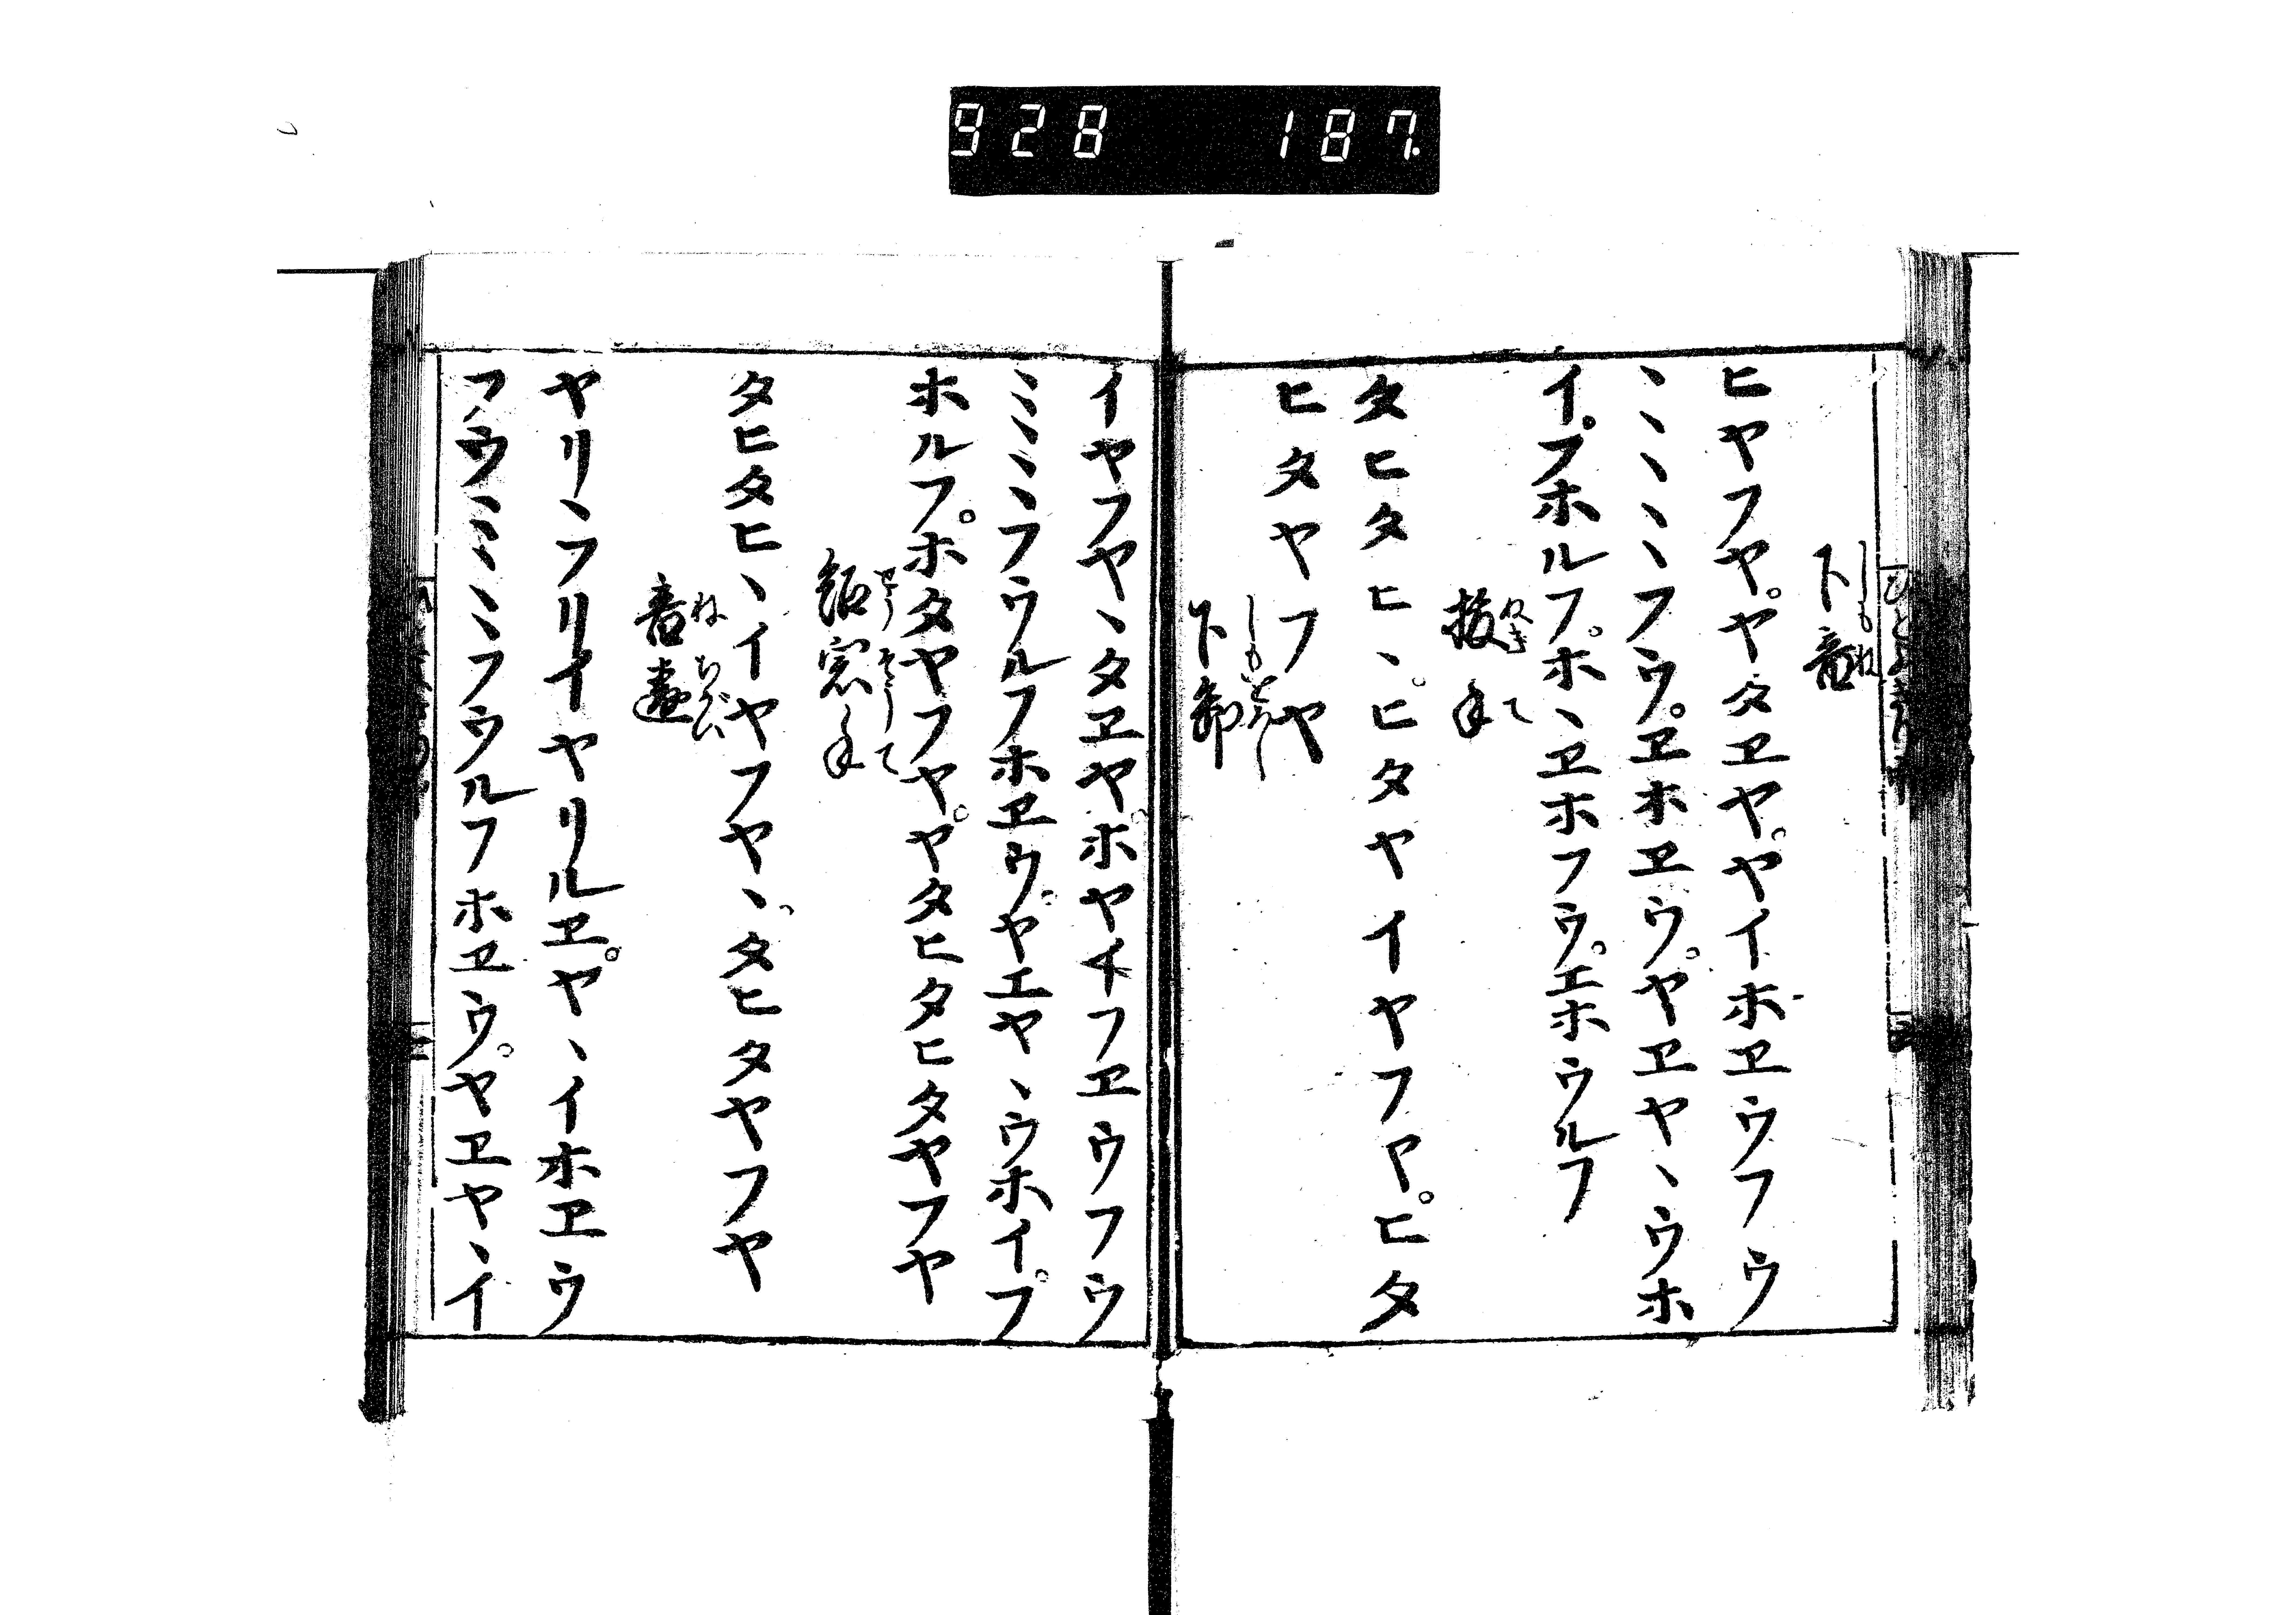 928 187.
下音
しもね
ヒヤフヤ。ヤタヱヤ。ヤイホヱウフウ
ヽヽヽヽヽフウ。ヱホヱウ。ヤヱヤヽウホ
イ。フホルフ。ホヽヱホフウ。エホウルフ
抜手
ぬきて
タヒタヒヽ。ヒタヤイヤフヤ。ヒタ
ヒタヤフヤ
下
イヤフヤヽタヱヤ。ホヤイフヱウフウ
ミミヽヽフウルフホヱウ。ヤエヤヽウホイ。フ
ホルフ。ホタヤフヤ。ヤタヒタヒタヤフヤ
窓手
タヒタヒヽイヤフヤヽ。タヒタヤフヤ
音違
ねちがい
ヤリヽフリイヤリルヱ。ヤヽイホヱウ
フウミミミフウルフホヱウ。ヤヱヤヽイ